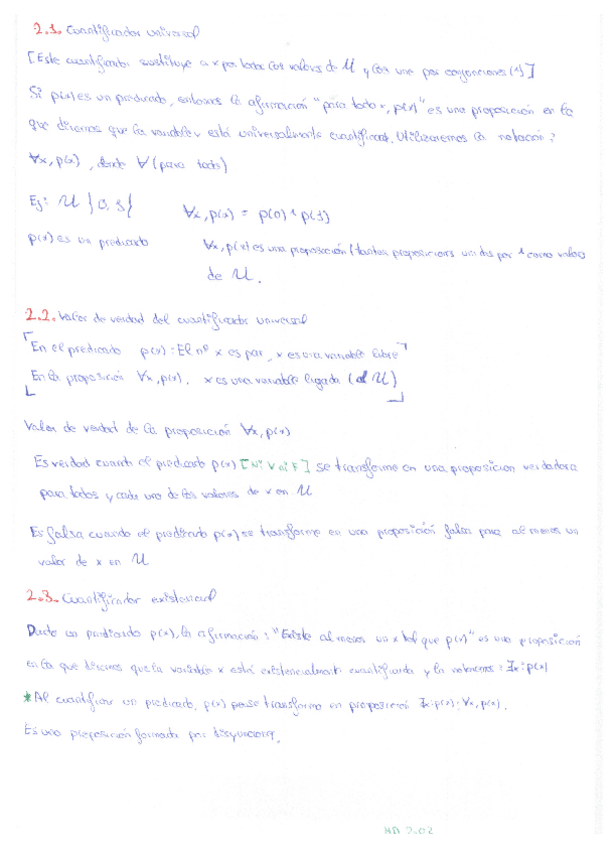 2.1. Cuantificador universal
[Este cuantificador sustituye a x por todos los valores de U y los une por conjunciones (^)]
Si p(x) es un predicado, entonces la afirmación "para todo x, p(x)" es una proposición en la
que diremos que la variable x está universalmente cuantificada. Utilizaremos la notación:
∀x, p(x), donde ∀ (para todo)
Ej: U {0,1} ∀x, p(x) = p(0) ^ p(1)
p(x) es un predicado ∀x, p(x) es una proposición (tantas proposiciones unidas por ^ como valores
de U.
2.2. Valor de verdad del cuantificador universal
En el predicado p(x): El nº x es par, x es una variable libre
En la proposición ∀x, p(x), x es una variable ligada (al U)
Valor de verdad de la proposición ∀x, p(x)
Es verdad cuando el predicado p(x) [Ni V ni F] se transforme en una proposición verdadera
para todos y cada uno de los valores de x en U
Es falsa cuando el predicado p(x) se transforme en una proposición falsa para al menos un
valor de x en U
2.3. Cuantificador existencial
Dado un predicado p(x), la afirmación: "Existe al menos un x tal que p(x)" es una proposición
en la que diremos que la variable x está existencialmente cuantificada y la notaremos: ∃x: p(x)
*Al cuantificar un predicado, p(x) se transforma en proposición ∃x: p(x); ∀x, p(x).
Es una proposición formada por disyunciones.